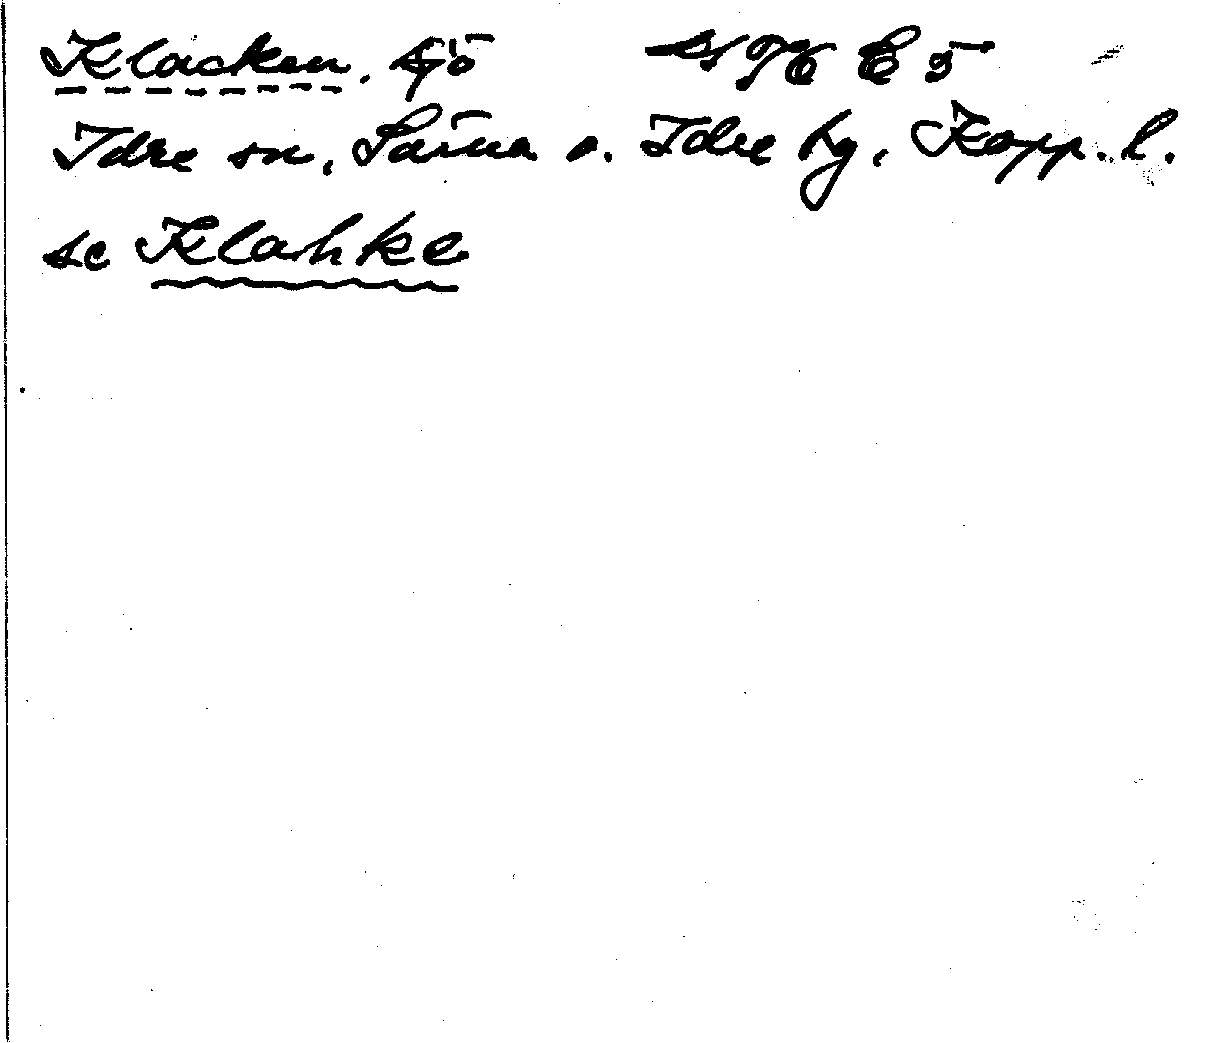 Klacken, sjö
Idre sn, Särna o. Idre tg, Kopp. l.
se Klahke